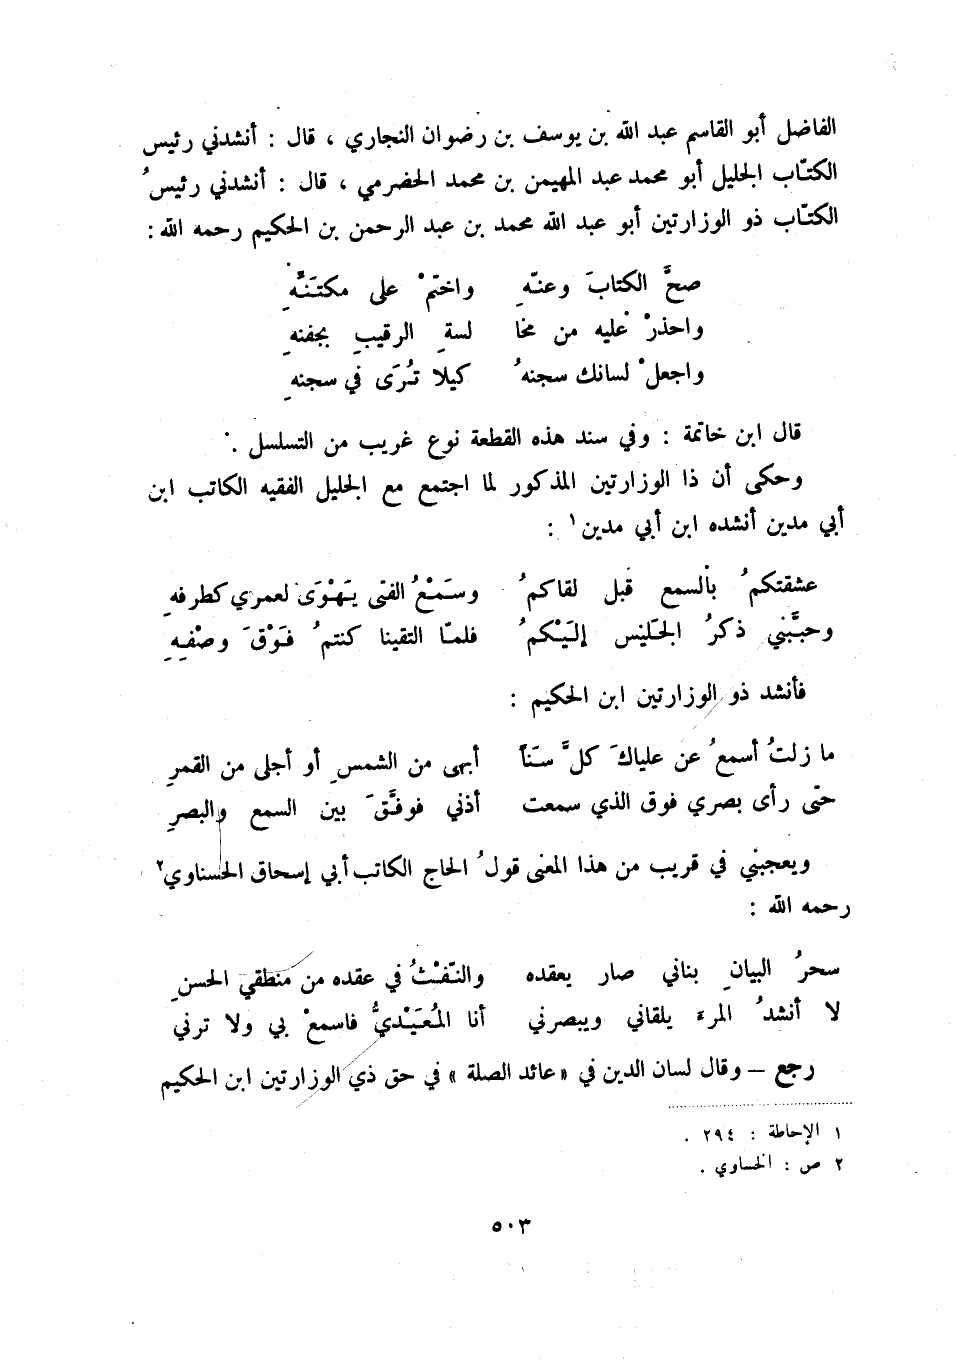 الفاضل أبو القاسم عبد الله بن يوسف بن رضوان النجاري ، قال : أنشدني رئيس
الكتّاب الجليل أبو محمد عبد المهيمن بن محمد الحضرمي ، قال : أنشدني رئيسُ
الكتّاب ذو الوزارتين أبو عبد الله محمد بن عبد الرحمن بن الحكيم رحمه الله :
صحَّ الكتابَ وعنّهِ واختمْ على مكتَنَّهِ
واحذرْ عليه من مخا لسةِ الرقيبِ بجفنهِ
واجعلْ لسانك سجنهُ كيلا تُرَى في سجنهِ
قال ابن خاتمة : وفي سند هذه القطعة نوع غريب من التسلسل .
وحكى أن ذا الوزارتين المذكور لما اجتمع مع الجليل الفقيه الكاتب ابن
أبي مدين أنشده ابن أبي مدين١ :
عشقتكمُ بالسمع قبل لقاكمُ وسَمْعُ الفتى يَهْوَى لعمري كطرفهِ
وحبَّبني ذكرُ الجَليس إلَيْكمُ فلمّا التقينا كنتمُ فَوْقَ وصْفِهِ
فأنشد ذو الوزارتين ابن الحكيم :
ما زلتُ أسمعُ عن علياكَ كلَّ سَناً أبهى من الشمسِ أو أجلى من القمرِ
حتّى رأى بصري فوق الذي سمعت أذني فوفّقَ بين السمع والبصرِ
ويعجبني في قريب من هذا المعنى قولُ الحاج الكاتب أبي إسحاق الحسناوي٢
رحمه الله :
سحرُ البيانِ بناني صار يعقده والنّفْثُ في عقده من منطقي الحسنِ
لا أنشدُ المرءَ يلقاني ويبصرني أنا المُعَيْديُّ فاسمعْ بي ولا ترني
رجع – وقال لسان الدين في « عائد الصلة » في حق ذي الوزارتين ابن الحكيم
١ الإحاطة : ٢٩٤ .
٢ ص : الحساوي .
٥٠٣